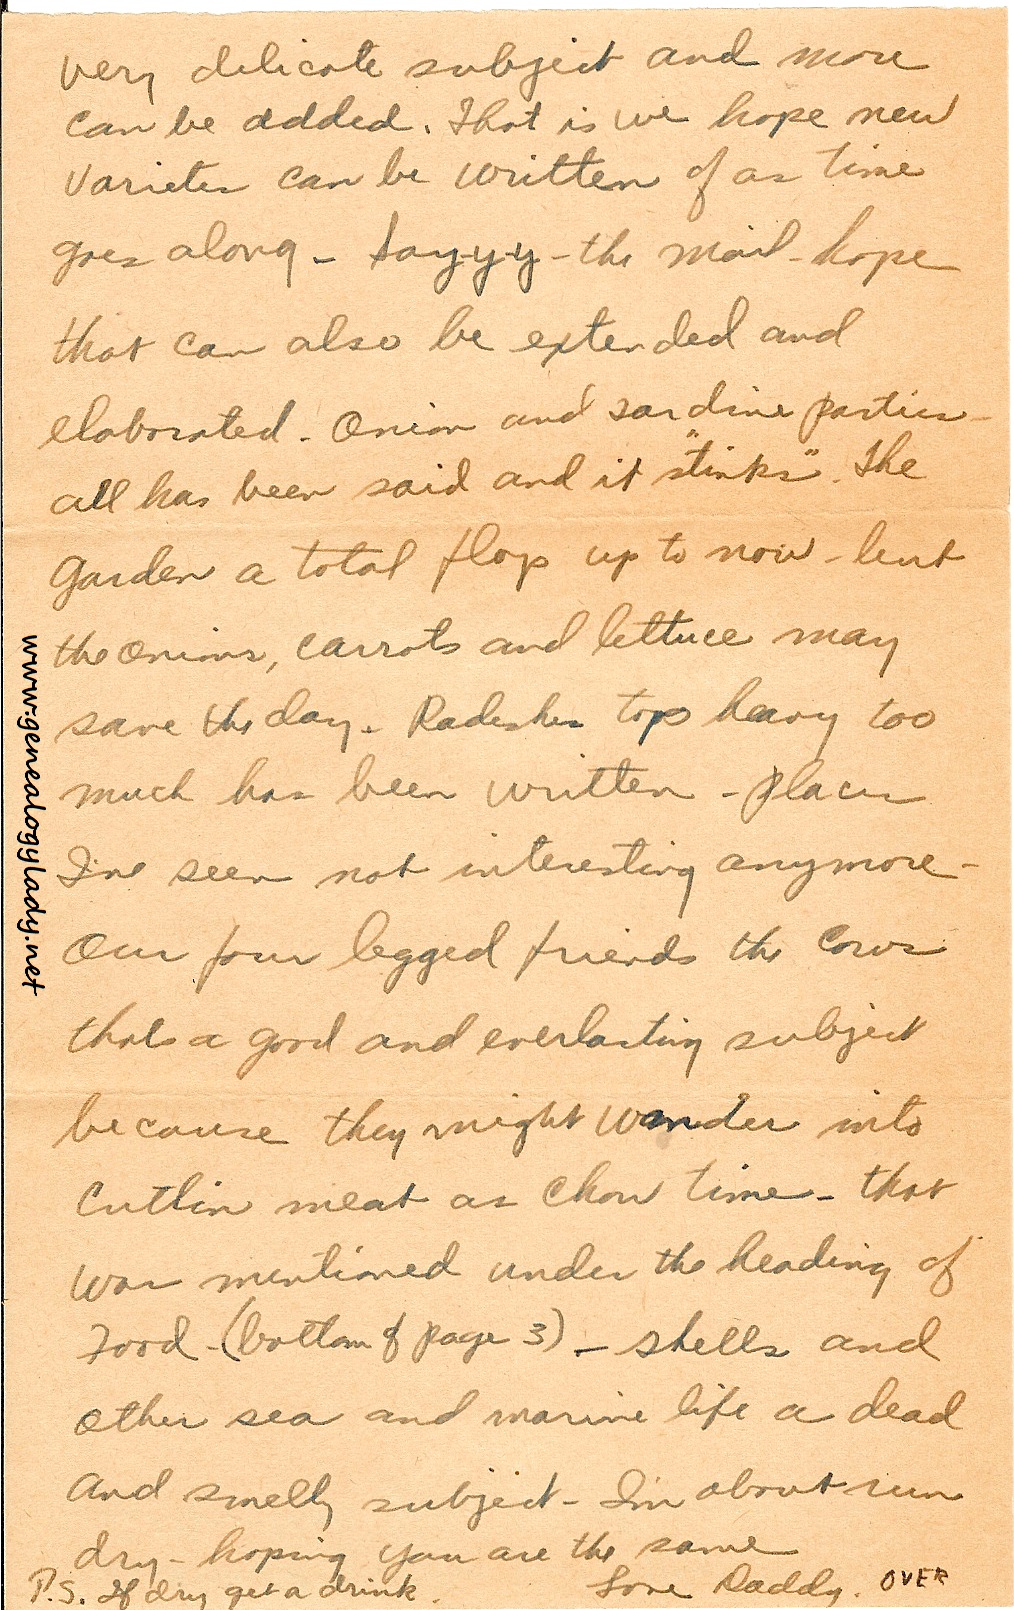 very delicate subject and more
can be added. That is we hope new
varieties can be written of as time
goes along - Say-y-y - the mail - hope
that can also be extended and
elaborated. Onion and sardine parties -
all has been said and it "stinks". The
Garden a total flop up to now - but
the onions, carrots and lettuce may
save the day. Radeshes top heavy too
much has been written - places
I've seen not interesting anymore -
Our four legged friends the cows
thats a good and everlasting subject
because they might wander into
Cutlin meat as chow time - that
was mentioned under the heading of
Food - (bottom of page 3) - shells and
other sea and marine life a dead
and smelly subject - I'm about run
dry - hoping you are the same
Love Daddy. OVER
P.S. If dry get a drink.
www.genealogylady.net